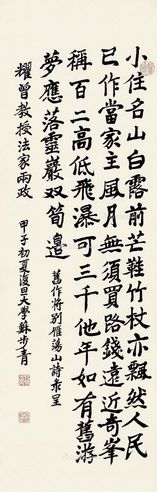 小住名山白露前芒鞋竹杖亦飄然人民
已作當家主風月無須買路錢遠近奇峯
稱百二高低飛瀑可三千他年如有舊游
夢應落靈巖双筍邊 舊作將別雁蕩山詩录呈
耀曾教授法家兩政 甲子初夏復旦大學蘇步青